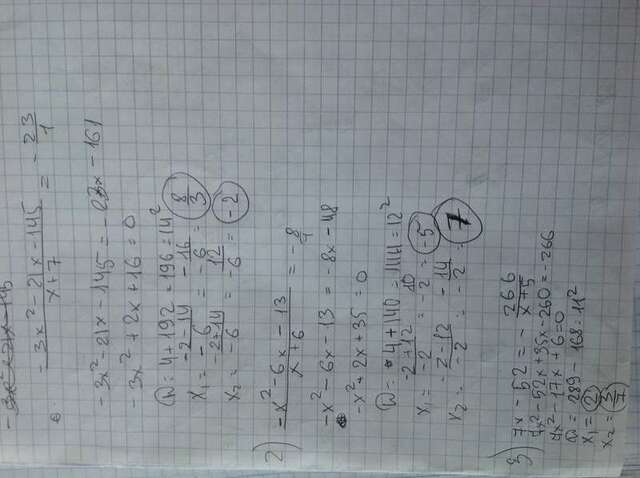 (-3x² - 21x - 145)/(x+7) = -23/1
-3x² - 21x - 145 = -23x - 161
-3x² + 2x + 16 = 0
D = 4 + 192 = 196 = 14²
x₁ = (-2-14)/-6 = -16/-6 = 8/3
x₂ = (-2+14)/-6 = 12/-6 = -2
2) (-x² - 6x - 13)/(x+6) = -8/1
-x² - 6x - 13 = -8x - 48
-x² + 2x + 35 = 0
D = 4 + 140 = 144 = 12²
x₁ = (-2+12)/-2 = 10/-2 = -5
x₂ = (-2-12)/-2 = -14/-2 = 7
3) 7x - 52 = -266/(x+5)
7x² - 52x + 35x - 260 = -266
7x² - 17x + 6 = 0
D = 289 - 168 = 11²
x₁ = 2
x₂ = 3/7